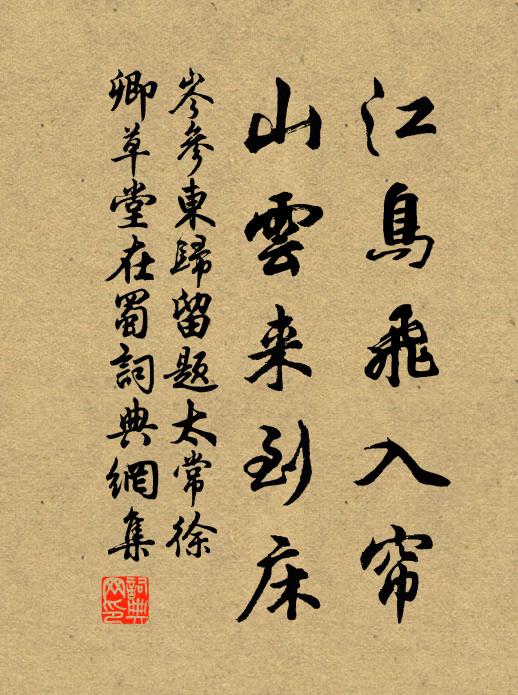 江鳥飛入帘
山雲来到床
岑參東歸留題太常徐
卿草堂在蜀詞典網集
詞典网印